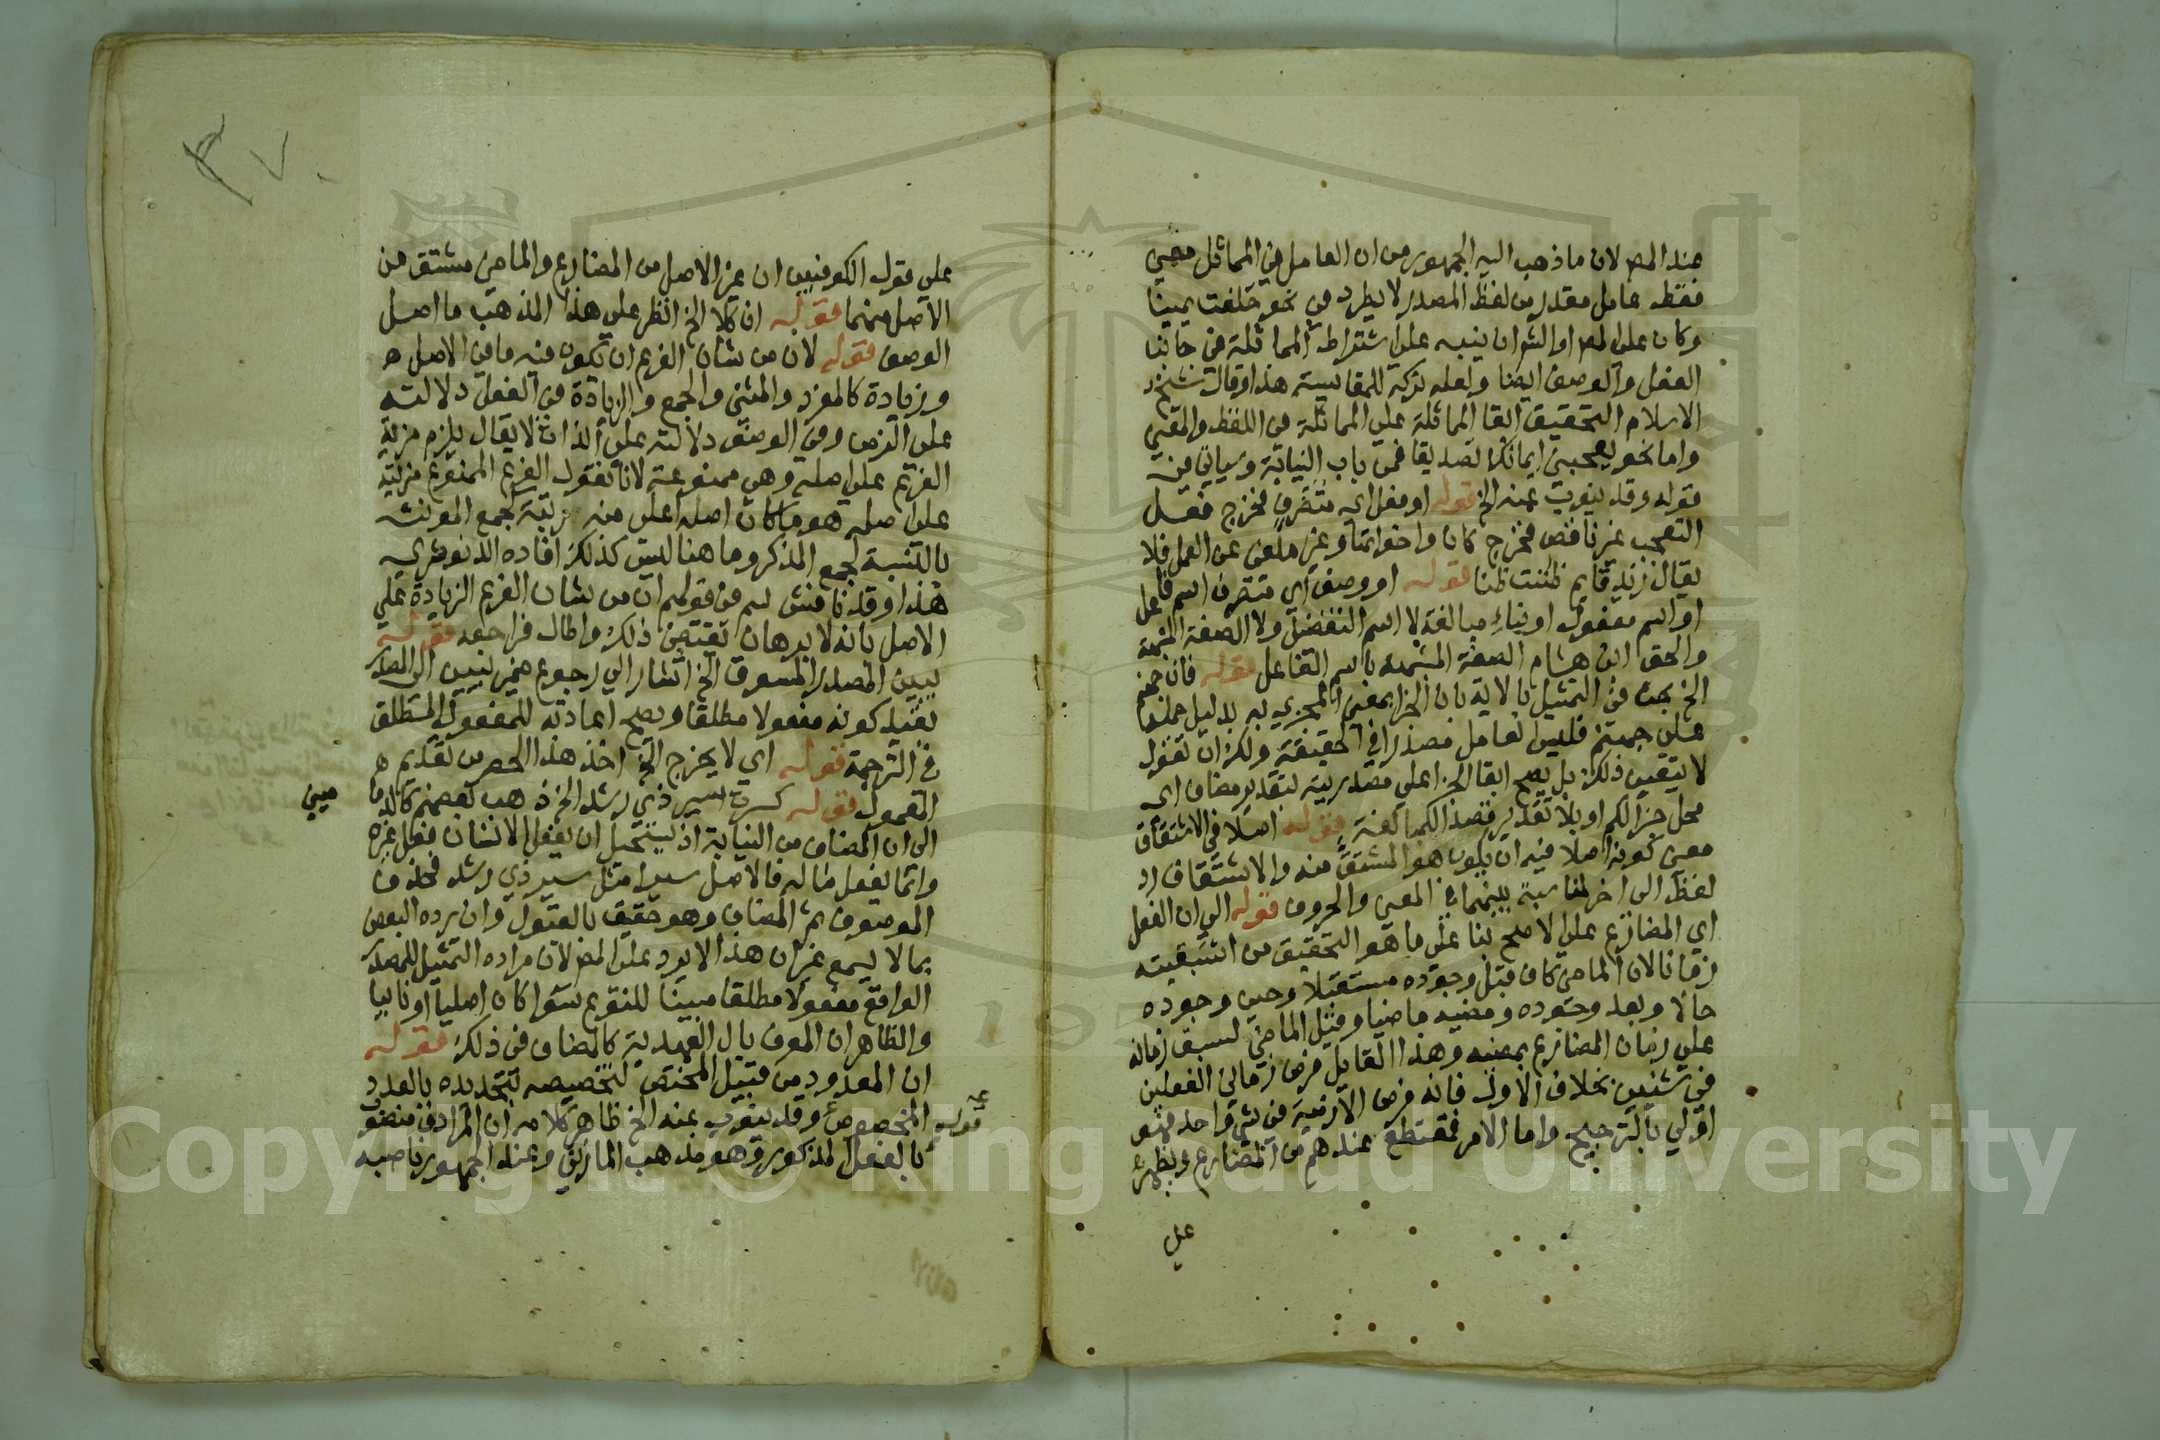 عند المص لان ما ذهب اليه الجمهور من ان العامل في المماثل معني
فقط عامل مقدر من لفظ المصدر لا يطرد في نحو حلفت يمينا
وكان على المص او الشران ينبه على اشتراط المماثلة في جانبنا
الفعل والوصف ايضا ولعله تركه للمقايسة هذا وقال شيخ
الاسلام التحقيق ابقا المماثلة على المماثلة في اللفظ والمعني
واما نحو يعجبني ايمانك تصديقا فمن باب النيابة وسياتي في
قوله وقد ينوب عنه الخ قوله او فعل اي متصرف فخرج فعل
التعجب غير ناقص فخرج كان واخواتها وغير ملغي عن العمل فلا
يقال زيد قايم ظننت ظنا قوله او وصف اي متصرف اسم فاعل
او اسم مفعول او بناء مبالغة لا اسم التفضيل ولا الصفة المشبهة
والحق ابن هشام الصفة المشبهة باسم الفاعل قوله فان جهنم
الخ بحث في التمثيل بالاية بان الجزا بمعني المجزي به بدليل حملها
على جهنم فليس العامل مصدرا في الحقيقة ولك ان تقول
لا يتعين ذلك بل يصح ابقا الجزا على مصدريته بتقدير مضاف اي
محل جزائكم او بلا تقدير قصدا للمبالغة قوله اصلا في الاشتقاق
معني كونه اصلا فيه ان يكون هو المشتق منه والاشتقاق رد
لفظ الى اخر لمناسبة بينهما في المعني والحروف قوله الى ان الفعل
اي المضارع على الاصح بنا على ما هو التحقيق من اسبقيته
زمانا لان الماضي كان قبل وجوده مستقبلا وحين وجوده
حالا وبعد وجوده ومضيه ماضيا وقيل الماضي لسبق زمانه
على زمان المضارع بمضيه وهذا القايل فرض زماني الفعلين
في شيئين بخلاف الاول فانه فرض الازمنة في شي واحد فهو
اولي بالترجيح واما الامر فمقتطع عندهم من المضارع ويظهر
على
٣٧
على قول الكوفيين ان غير الاصل من المضارع والماضي مشتق من
الاصل منهما قوله ان كلا الخ انظر على هذا المذهب ما اصل
الوصف قوله لان من شان الفرع ان يكون فيه ما في الاصل
وزيادة كالمفرد والمثني والجمع والزيادة في الفعل دلالته
على الزمن وفي الوصف دلالته على الذات لا يقال يلزم مزية
الفرع على اصله وهي ممنوعة لانا نقول الفرع الممنوع مزيته
على اصله هو ما كان اصله اعلى منه رتبة كجمع المونث
بالنسبة لجمع المذكر وما هنا ليس كذلك افاده الدنوشري
هذا وقد ناقش سم في قولهم ان من شان الفرع الزيادة على
الاصل بانه لا برهان يقتضي ذلك واطال فراجعه قوله
يبين المصدر المسوق الخ اشار الى رجوع ضمير يبين الى المصدر
بقيد كونه مفعولا مطلقا ويصح اعادته للمفعول المطلق
في الترجمة قوله اي لا يخرج الخ اخذ هذا الحصر من تقديم
المعمول قوله كسرت سير ذي رشد الخ ذهب بعضهم كالدما
ميني
الى ان المضاف من النيابة اذ يستحيل ان يفعل الانسان فعل غيره
وانما يفعل مثاله فالاصل سيرا مثل سير ذي رشد فحذف
الموصوف ثم المضاف وهو حقيق بالقبول وان رده البعض
بما لا يسمع غير ان هذا لا يرد على المص لان مراده التمثيل للمصدر
الواقع مفعولا مطلقا مبينا للنوع سوا كان اصليا او نايبا
والظاهر ان المعرف بال العهدية كالمضاف في ذلك قوله
ان المعدود من قبيل المختص لتخصيصه بتحديده بالعدد
المخصوص وقد ينوب عنه الخ ظاهر كلامه ان المرادف منصو
قوله
بالفعل المذكور وهو مذهب المازني وعند الجمهور ناصبه